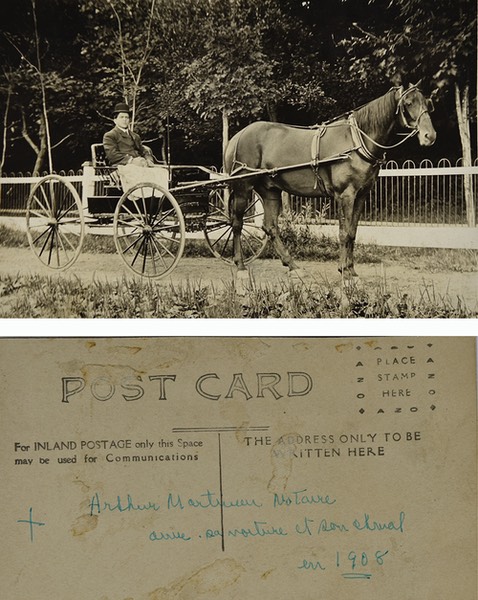 POST CARD
A PLACE A
Z STAMP Z
O HERE O
A Z O
For INLAND POSTAGE only this Space
may be used for Communications
THE ADDRESS ONLY TO BE
WRITTEN HERE
Arthur Martineau Notaire
avec sa voiture et son cheval
en 1908